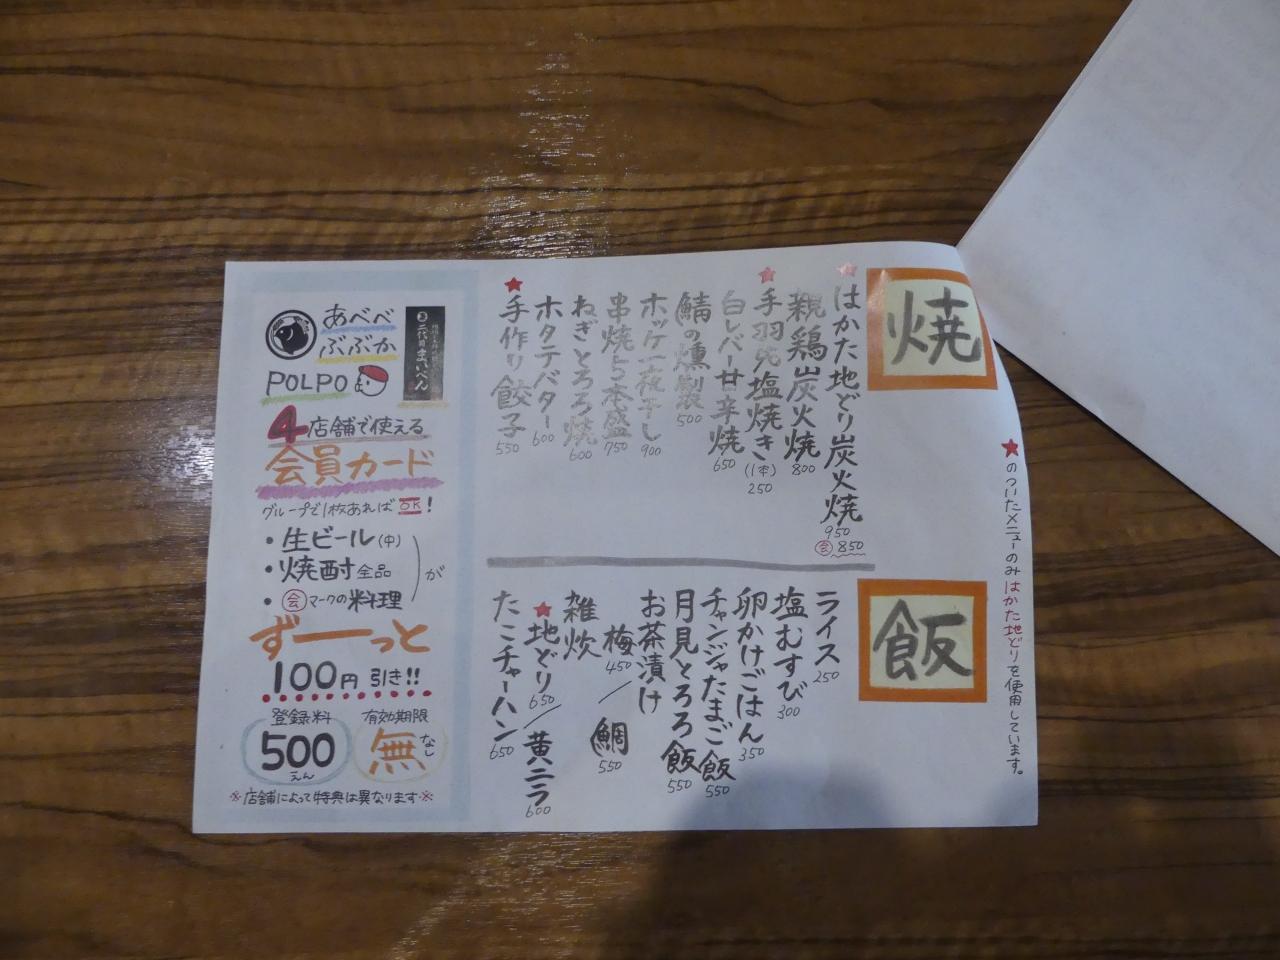 焼
はかた地どり炭火焼 950
会 850
親鶏炭火焼 800
手羽先塩焼き (1本) 250
白レバー甘辛焼 650
鯖の燻製 500
ホッケ一夜干し 900
串焼き5本盛 750
ねぎとろろ焼 600
ホタテバター 600
手作り餃子 550
飯
ライス 250
塩むすび 300
卵かけごはん 350
チャンジャたまご飯 550
月見とろろ飯 550
お茶漬け
梅 450 / 鯛 550
雑炊
地どり 650 / 黄ニラ 600
たこチャーハン 650
★のついたメニューのみはかた地どりを使用しています。
あべべ
ぶぶか
POLPO
二代目 まいべん
4店舗で使える
会員カード
グループで1枚あればOK!
・生ビール(中)
・焼酎全品
・会マークの料理
が
ずーーっと
100円引き!!
登録料
500
えん
有効期限
無
なし
※店舗によって特典は異なります※